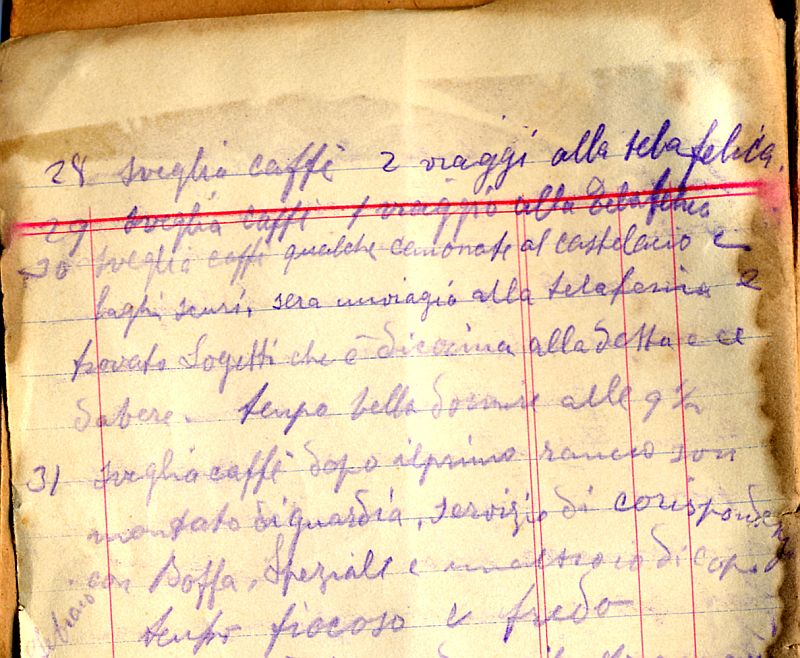 28 sveglia caffè 2 viaggi alla telafelica.
29 sveglia caffè 1 viaggio alla
30 sveglia caffè qualche canonate al castelacio e
laghi scuri, sera unviagio alla e
trovato Sogetti che è dicocina alladetta e
dabere. tenpo bello dormire alle 9 ½
31 svegliacaffè dopo ilprimo rancio son
montato diguardia, servizio di
con Boffa, Speziale e
tenpo fiocoso e fredo